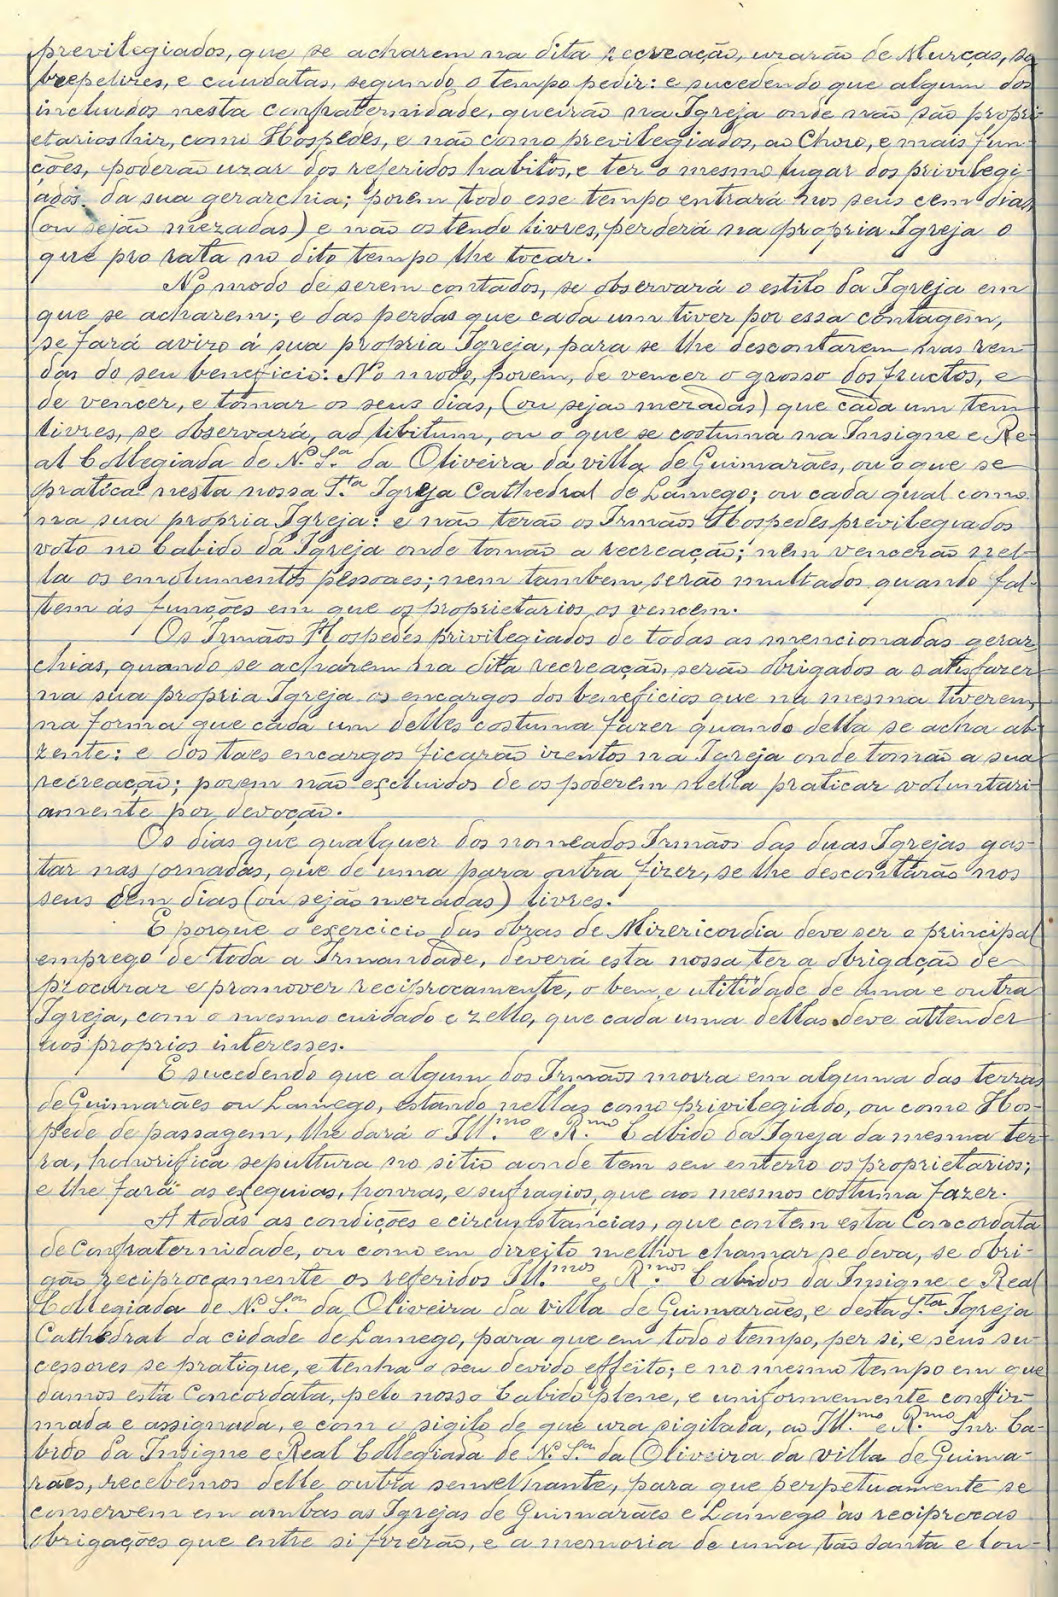 previlegiados, que se acharem na dita recreação, uzarão de Murças, so
brepelizes, e caudatas, segundo o tempo pedir: e sucedendo que algum dos
incluidos nesta confraternidade, queirão na Igreja onde não são propri
etarios hir, como Hospedes, e não como previlegiados, ao Choro, e mais fun-
ções, poderão uzar dos referidos habitos, e ter o mesmo lugar dos privilegi-
ados da sua gerarchia; porem todo esse tempo entrará nos seus cem dias,
(ou sejão mezadas) e não os tendo livres, perderá na propria Igreja o
que pro rata no dito tempo lhe tocar.
No modo de serem contados, se observará o estilo da Igreja em
que se acharem; e das perdas que cada um tiver por essa contagem,
se fará avizo á sua propria Igreja, para se lhe descontarem nas ren-
das do seu beneficio: No modo, porem, de vencer o grosso dos fructos, e
de vencer, e tomar os seus dias, (ou sejão mezadas) que cada um tem
livres, se observará, ad libitum, ou o que se costuma na Insigne e Re-
al Collegiada de N. S.ª da Oliveira da villa de Guimarães, ou o que se
pratica nesta nossa S.ta Igreja Cathedral de Lamego; ou cada qual como
na sua propria Igreja: e não terão os Irmãos Hospedes previlegiados
voto no Cabido da Igreja onde tomão a recreação; nem vencerão nel-
la os emolumentos pessoaes; nem tambem serão multados quando fal-
tem ás funções em que os proprietarios os vencem.
Os Irmãos Hospedes privilegiados de todas as mencionadas gerar
chias, quando se acharem na dita recreação, serão obrigados a satisfazer
na sua propria Igreja os encargos dos beneficios que na mesma tiverem,
na forma que cada um delles costuma fazer quando della se acha au-
zente: e dos taes encargos ficarão izentos na Igreja onde tomão a sua
recreação; porem não excluidos de os poderem nella praticar voluntari-
amente por devoção.
Os dias que qualquer dos nomeados Irmãos das duas Igrejas gas-
tar nas jornadas, que de uma para outra fizer, se lhe descontarão nos
seus cem dias (ou sejão mezadas) livres.
E porque o exercicio das obras de Mizericordia deve ser o principal
emprego de toda a Irmandade, deverá esta nossa ter a obrigação de
procurar e promover reciprocamente, o bem e utilidade de uma e outra
Igreja, com o mesmo cuidado e zello, que cada uma dellas deve attender
aos proprios interesses.
E sucedendo que algum dos Irmãos morra em alguma das terras
de Guimarães ou Lamego, estando nellas como privilegiado, ou como Hos-
pede de passagem, lhe dará o Ill.mo e R.mo Cabido da Igreja da mesma ter-
ra, honorifica sepultura no sitio aonde tem seu enterro os proprietarios;
e lhe fará as exequias, honras, e sufragios, que aos mesmos costuma fazer.
A todas as condições e circunstancias, que contem esta Concordata
de Confraternidade, ou como em direito melhor chamar se deva, se obri-
gão reciprocamente os referidos Ill.mos e R.mos Cabidos da Insigne e Real
Collegiada de N. S.ra da Oliveira da villa de Guimarães, e desta S.ta Igreja
Cathedral da cidade de Lamego, para que em todo o tempo, per si, e seus su-
cessores se pratique, e tenha o seu devido effeito; e no mesmo tempo em que
damos esta Concordata, pelo nosso Cabido pleno, e uniformemente confir-
mada e assignada, e com o sigilo de que uza sigilada, ao Ill.mo e R.mo Snr. Ca-
bido da Insigne e Real Collegiada de N. S.ra da Oliveira da villa de Guima-
rães, recebemos delle outra semelhante, para que perpetuamente se
conservem em ambas as Igrejas de Guimarães e Lamego as reciprocas
obrigações que entre si fizerão, e a memoria de uma tão santa e lou-